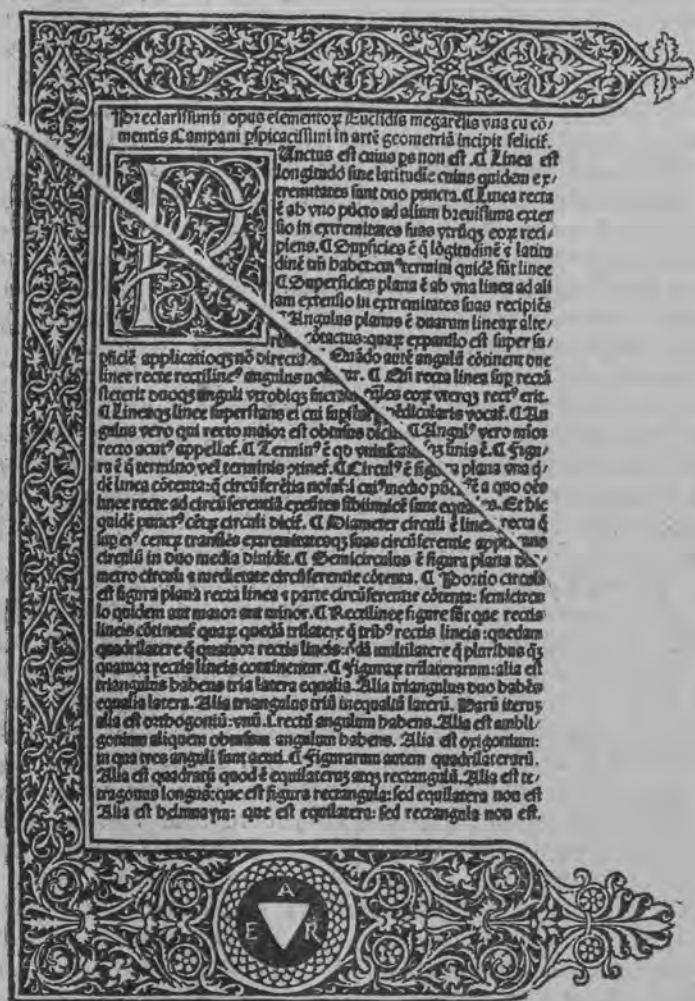 Preclarissimū opus elementoꝝ Euclidis megarēsis vna cū cō/
mentis Campani pspicacissimi in artē geometriā incipit felicit.
PUnctus est cuius ps non est .¶ Linea est
longitudo sine latitudīe cuius quidem ex/
tremitates sunt duo puncta.¶ Linea recta
ē ab vno pūcto ad alium breuissima exten
sio in extremitates suas vtrūqꝫ eoꝝ reci/
piens.¶ Supficies ē q̄ lōgitudinē ⁊ latitu
dinē tm̄ habet: cuiꝰ termini quidē sūt linee
¶ Superficies plana ē ab vna linea ad ali
am extensio in extremitates suas recipiēs
¶ Angulus planus ē duarum lineaꝝ alte/
cōtactus: quaꝝ expansio est super su/
pficiē applicatioqꝫ nō directa Quādo autē angulū cōtinent due
linee recte rectilineꝰ angulus ¶ Qñ recta linea sup rectā
steterit duoqꝫ anguli vtrobiqꝫ eoꝝ vterqꝫ rectꝰ erit.
¶ Lineaqꝫ linee superstans ei cui ¶ An
gulus vero qui recto maior est obtusus ¶ Angulꝰ vero mīor
recto acutꝰ appellat.¶ Terminꝰ ē qd ē.¶ Figu
ra ē q̄ termino vel terminis ptinet.¶ Circulꝰ ē figura plana vna q̄
dē linea cōtenta: q̄ circūferētia ī cuiꝰ medio ē a quo oēs
linee recte ad circūferentiā sunt Et hic
quidē punctꝰ cētꝝ circuli dicit.¶ Diameter circuli ē linea recta q̄
sup eiꝰ centꝝ transiēs extremitatesqꝫ suas circūferentie
circulū in duo media diuidit.¶ Semicirculus ē figura plana
metro circuli ⁊ medietate circūferentie cōtenta.¶ Portio circuli
est figura planā recta linea ⁊ parte circūferentie cōtenta: semicircu
lo quidem aut maior aut minor.¶ Rectilinee figure sūt que rectis
lineis cōtinent quaꝝ quedā trilatere q̄ tribꝰ rectis lineis: quedam
quadrilatere q̄ quatuor rectis lineis: multilatere q̄ pluribus qꝫ
quatuor rectis lineis continentur.¶ Figuraꝝ trilaterarum: alia est
triangulus habens tria latera equalia. Alia triangulus duo habēs
equalia latera. Alia triangulus triū inequaliū laterū. Harū iteruꝫ
alia est orthogoniū: vnū.ſ. rectū angulum habens. Alia est ambli/
gonium aliquem obtusum angulum habens. Alia est oxigonium:
in qua tres anguli sunt acuti.¶ Figurarum autem quadrilaterarū.
Alia est quadratū quod ē equilateruꝫ atqꝫ rectangulū. Alia est te/
tragonus longus: que est figura rectangula: sed equilatera non est
Alia est helmuaym: que est equilatera: sed rectangula non est.
A
E R